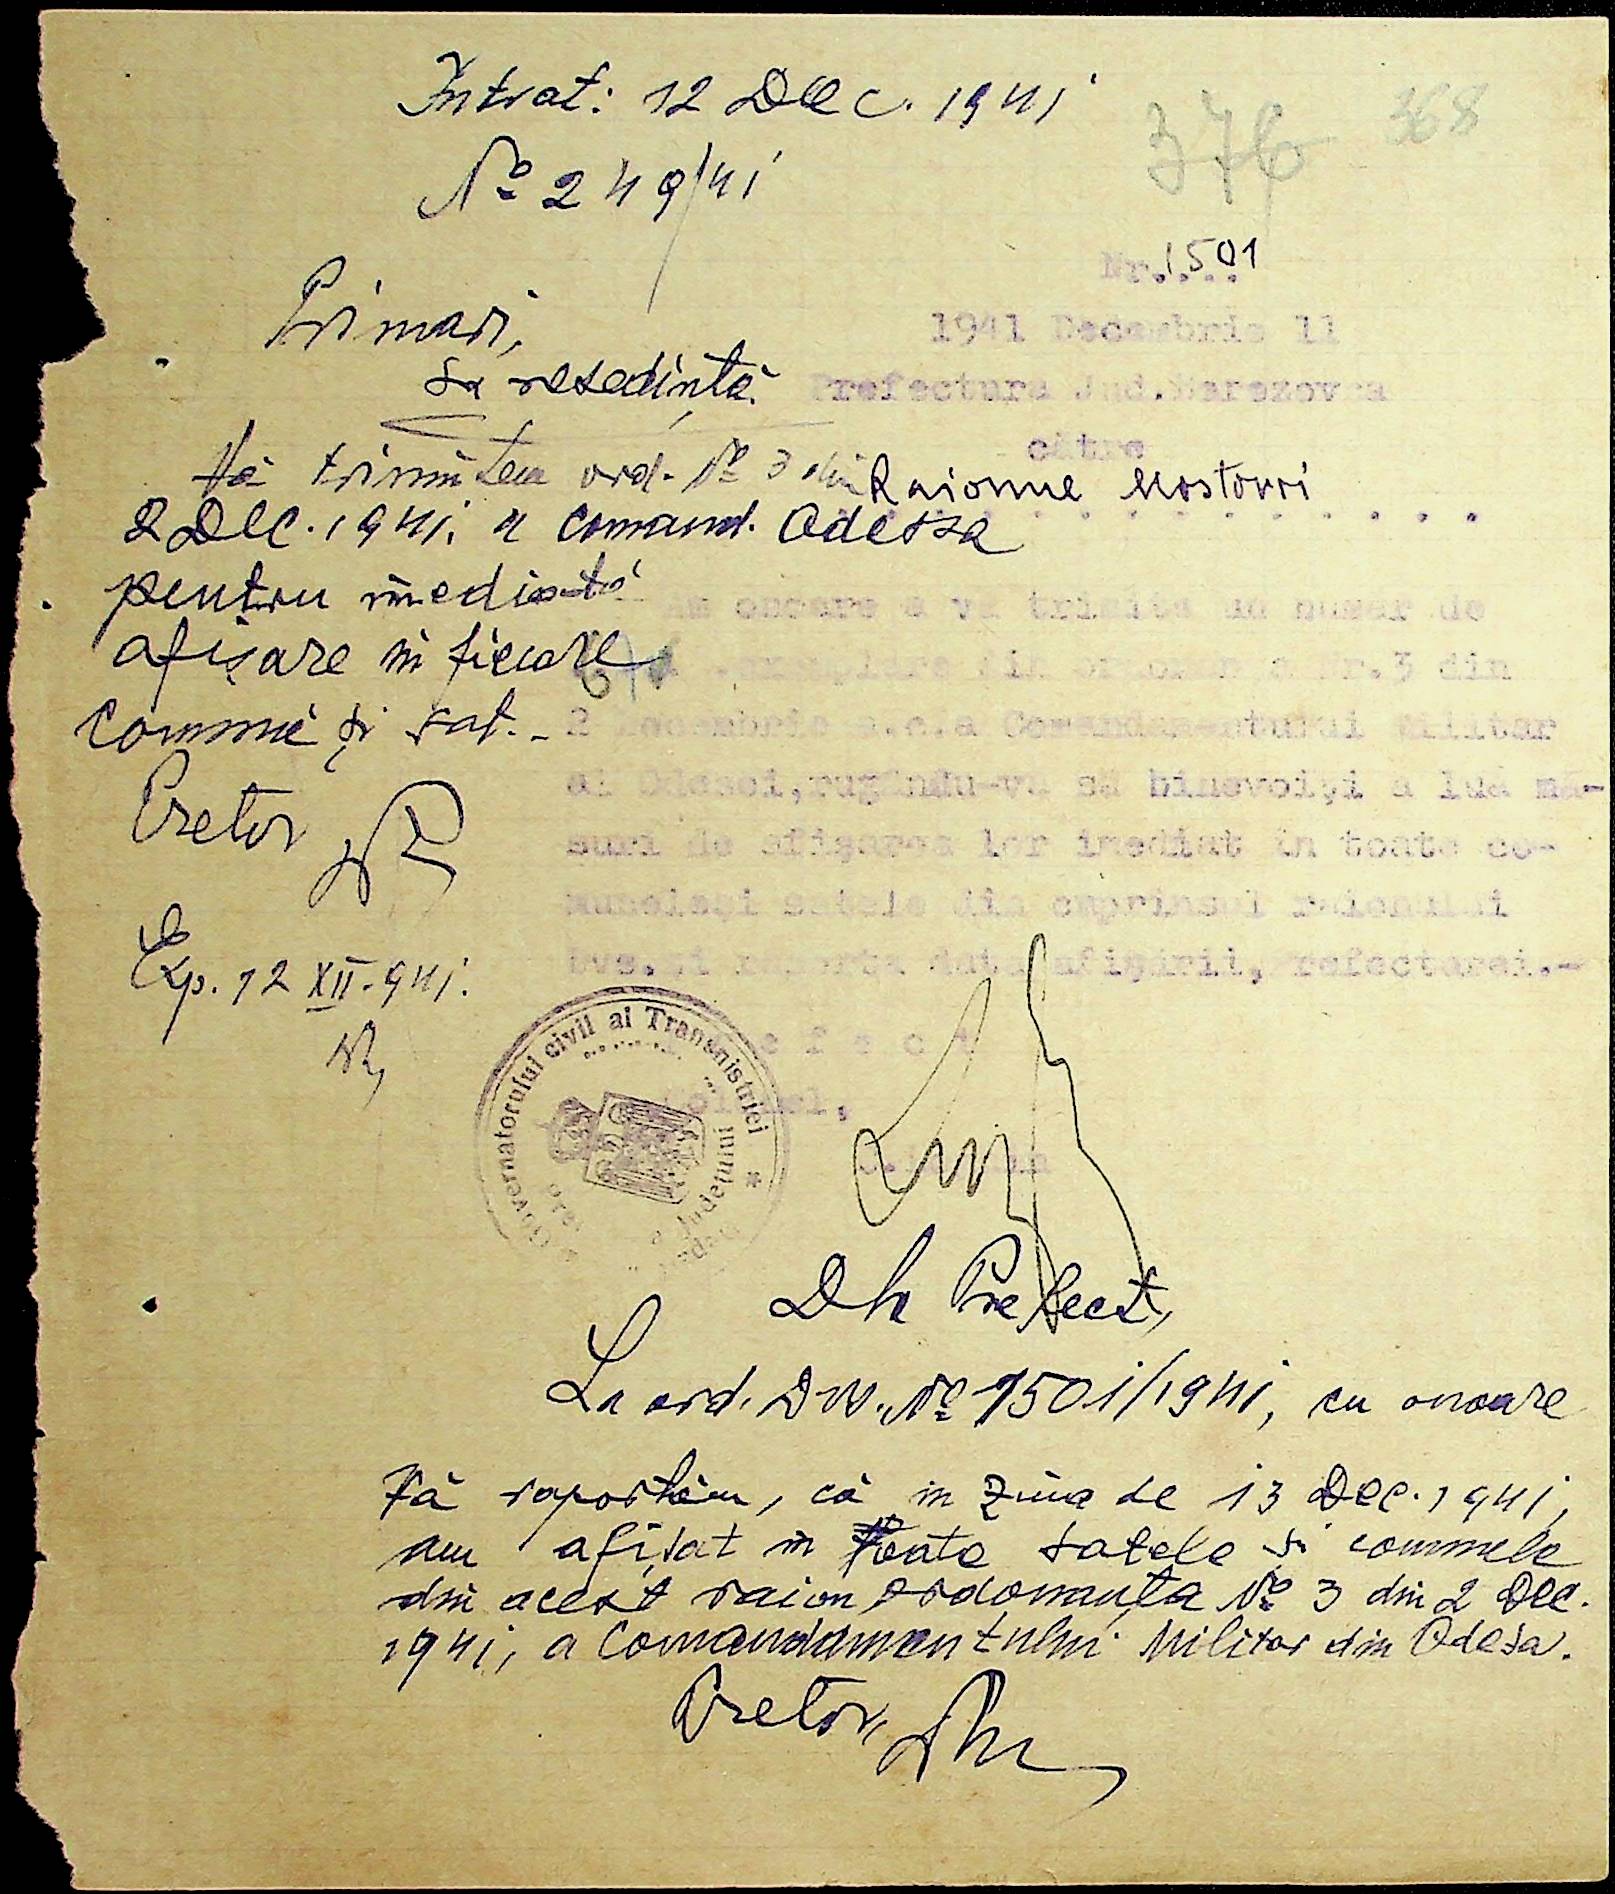 Intrat: 12 Dec. 1941
№ 249/41
376 368
Nr. 1501
1941 Decembrie 11
Prefectura Jud. Berezovca
către
Raionul Mostovoi
Primari,
La resedință.
Vă trimitem ord. № 3 din
2 Dec. 1941. a Comand. Odessa
pentru imediată
afișare in fiecare
comună și sat. -
Pretor
Exp. 12 XII. 941.
Am onoare a vă trimite un numar de
exemplare din ordonanța nr. 3 din
2 Decembrie a.c. a Comandamentului Militar
al Odesei, rugându-vă să binevoiți a lua mă-
suri de afișarea lor imediat in toate co-
munele și satele din cuprinsul raionului
Dvs. și raporta data afișirii, Prefecturei.-
Prefect
Colonel,
Guvernatorului civil al Transnistriei
Județului
Dle Prefect,
La ord. Dvs. № 1501/1941, cu onoare
Vă raportăm, că in ziua de 13 Dec. 1941,
am afișat in toate satele si comunele
din acest raion ordonanța № 3 din 2 Dec.
1941, a Comandamentului Militar din Odesa.
Pretor,